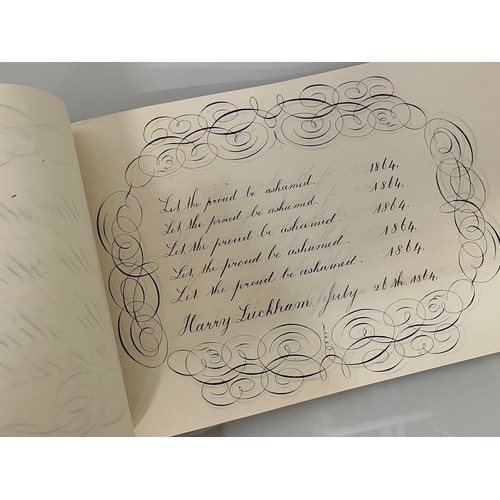 Let the proud be ashamed. 1864.
Let the proud be ashamed. 1864.
Let the proud be ashamed. 1864.
Let the proud be ashamed. 1864.
Let the proud be ashamed. 1864.
Harry Luckham. July 26th. 1864.